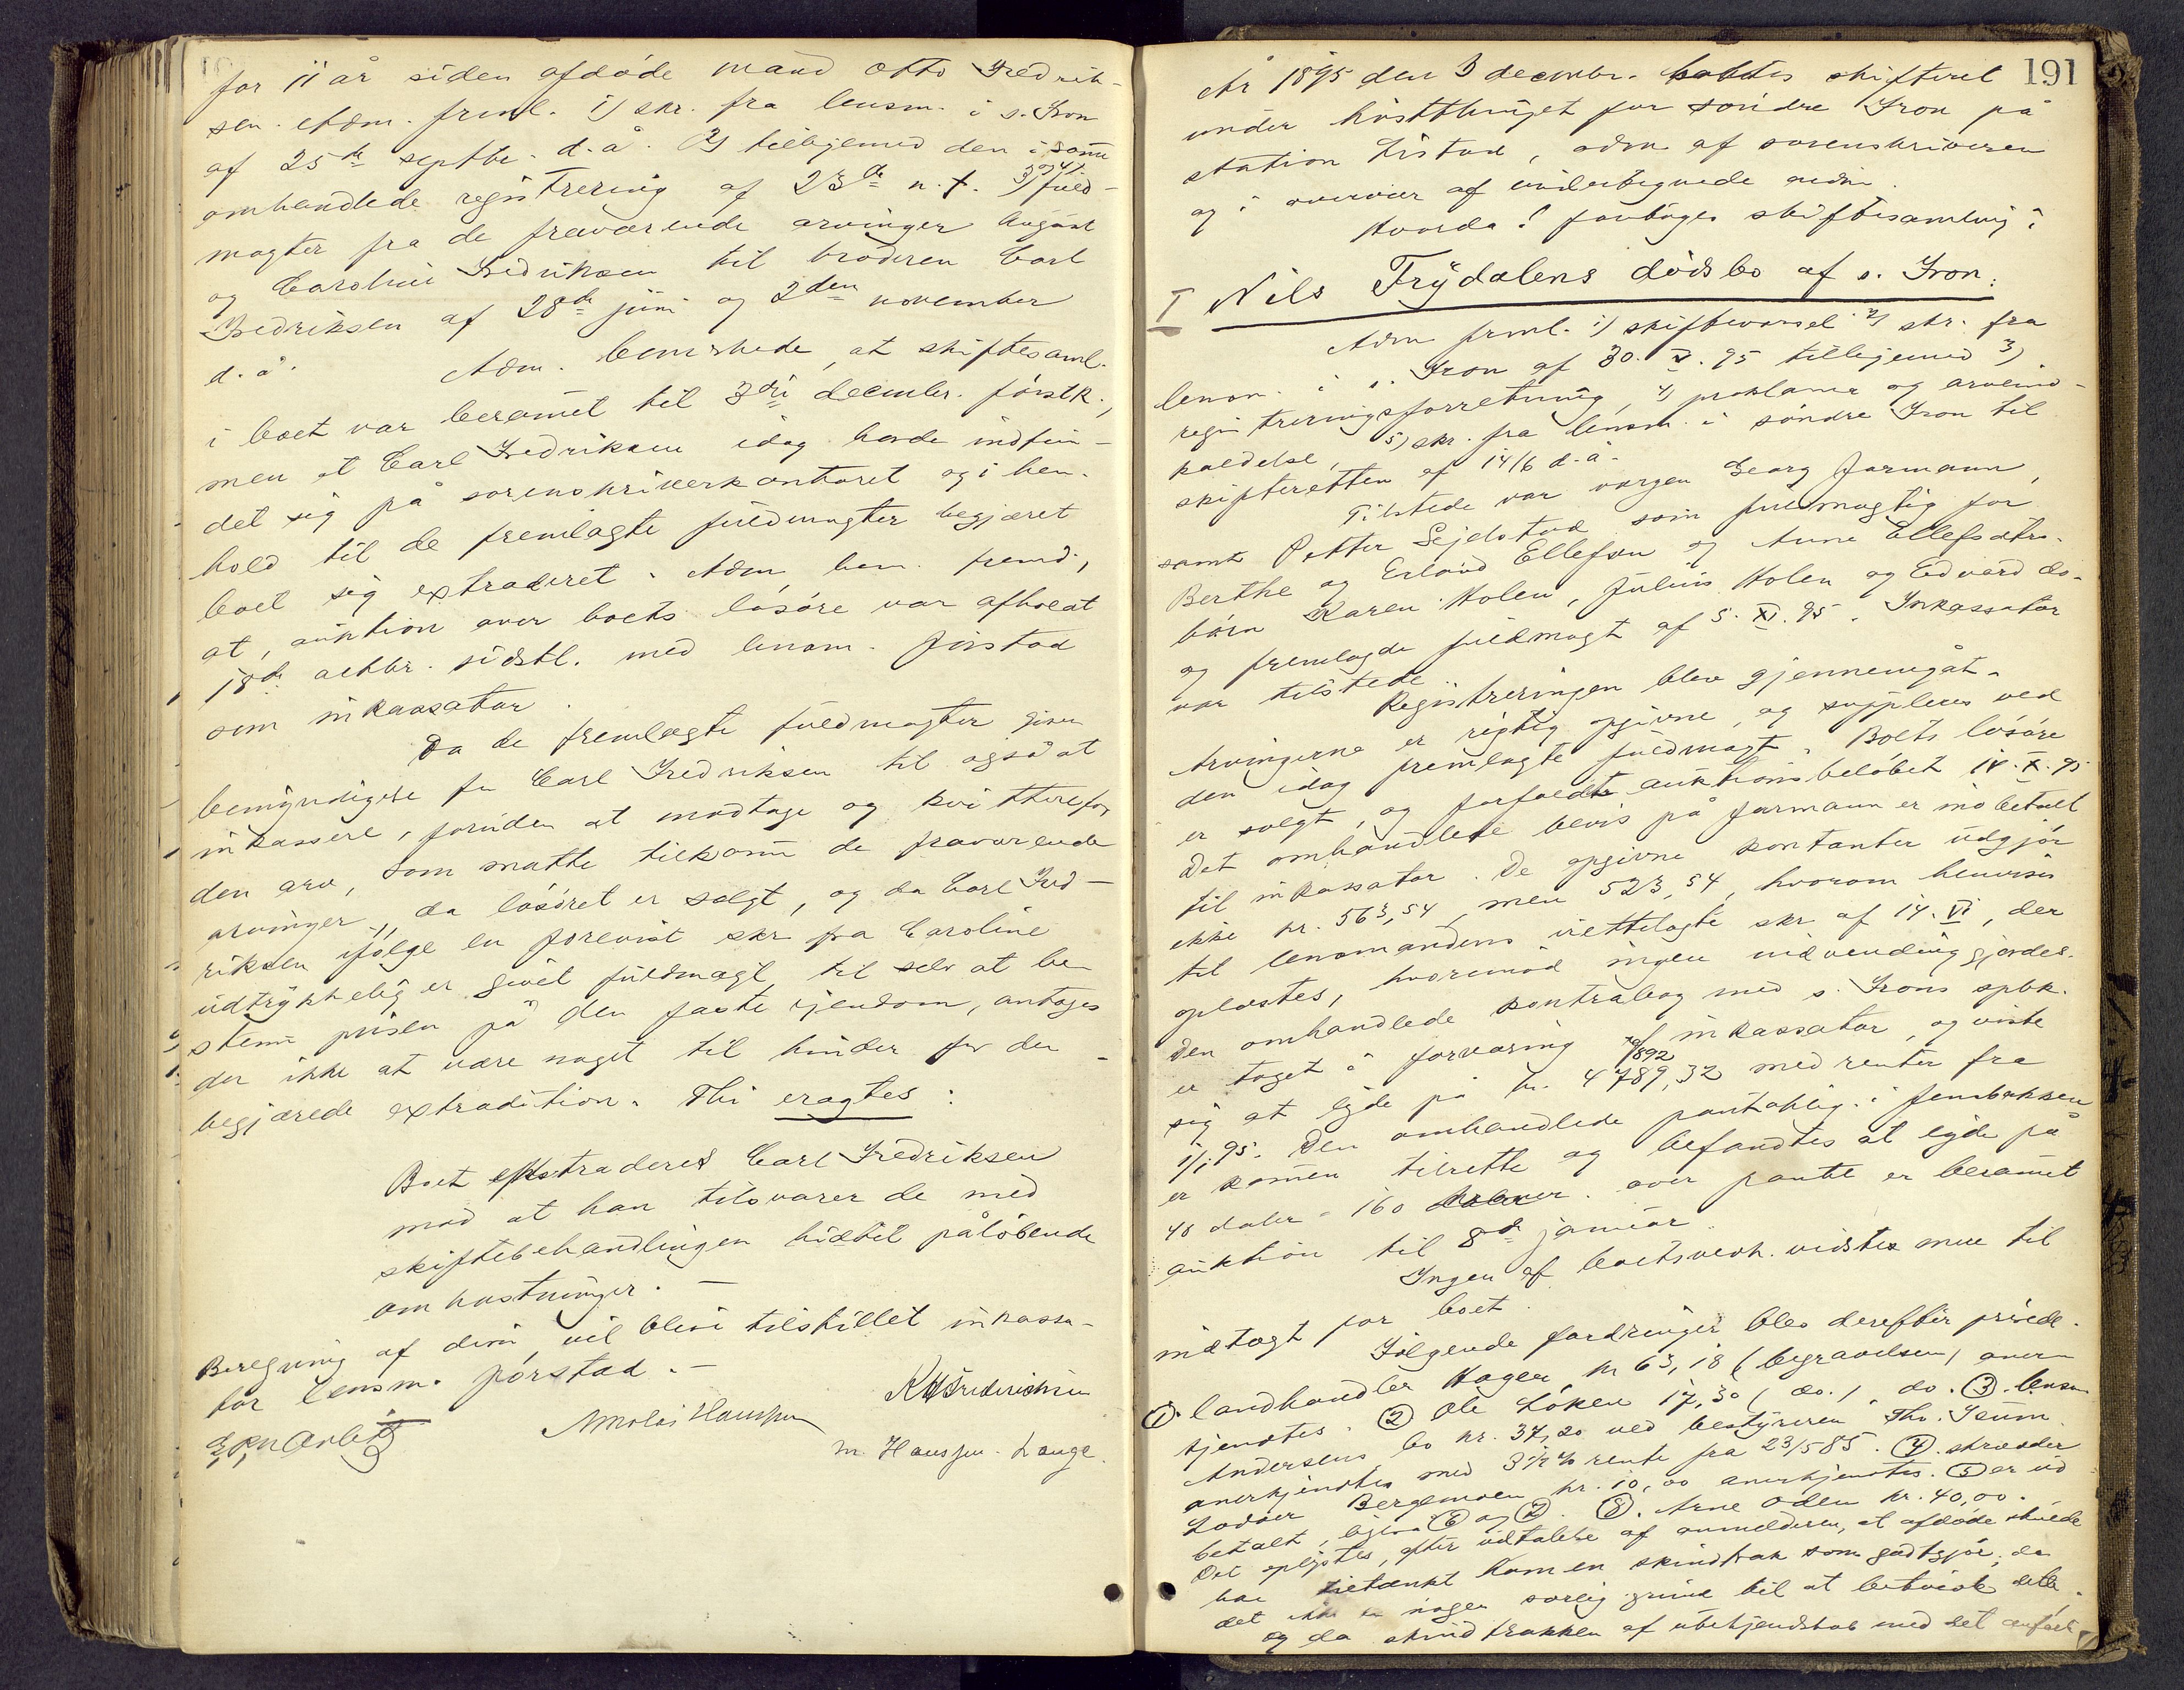 for 11 år siden afdøde mand Otto Fredrik-
sen. Adm. freml. 1) skr. fra lensm. i s. Fron
af 25de septbr. d.å. 2) tilligemed den i samme
omhandlede registrering af 23de n. f. 3) og 4) fuld-
magter fra de fraværende arvinger August
og Caroline Fredriksen til broderen Carl
Fredriksen af 28de juni og 2den november
d.å.
Adm. bemærkede, at skiftesaml.
i boet var berammet til 3die decembr. førstk.,
men at Carl Fredriksen idag havde indfun-
det sig på sorenskriverkontoret og i hen-
hold til de fremlagte fuldmagter begjæret
boet sig extraderet. Adm. bem. fremd.,
at auktion over boets løsøre var afholdt
18de oktbr. sidstl. med lensm. Jørstad
som inkassator.
Da de fremlagte fuldmagter giver
bemyndigelse for Carl Fredriksen til også at
inkassere, foruden at modtage og kvittere for
den arv, som måtte tilkomme de fraværende
arvinger, da løsøret er solgt, og da Carl Fred-
riksen ifølge en forevist skr. fra Caroline
udtrykkelig er givet fuldmagt til selv at be-
stemme prisen på den faste eiendom, antages
der ikke at være noget til hinder for den
begjærede extradition. Thi eragtes:
Boet ekstraderes Carl Fredriksen
mod at han tilsvarer de med
skiftebehandlingen hidtil påløbende
omkostninger.
Beregning af dem vil blive tilstillet inkassa-
tor lensm. Jørstad.
Nikolai Hanssen
K Frederichsen
M. Hanssen. Lange.
191
År 1895 den 3 decembr. holdtes skifteret
under høstthinget for søndre Fron på
station Listad, adm. af sorenskriveren
og i overvær af undertegnede vidner.
Hvorda! foretoges skiftesamling i
I Nils Frydalens dødsbo af s. Fron:
Adm. freml. 1) skiftevarsel 2) skr. fra
lensm. i s. Fron af 30. V. 95 tilligemed 3)
registreringsforretning, 4) proklama og arveind-
kaldelse, 5) skr. fra lensm. i søndre Fron til
skifteretten af 14/6 d.å.
Tilstede var vergen Georg Formann,
samt Petter Sejelstad som fuldmægtig for
Berthe og Erland Ellefsen og Anne Ellefsdtrs.
børn Karen Holen, Julius Holen og Edvard do.
og fremlagde fuldmagt af 5. XI. 95. Inkassator
var tilstede.
Registreringen blev gjennemgåt.
Arvingerne er rigtig opgivne, og suppleres ved
den idag fremlagte fuldmagt. Boets løsøre
er solgt, og forfaldt auktionsbeløbet 14. X. 95
Det omhandlede bevis på Formann er indbetalt
til inkassator. De opgivne kontanter udgjør
ikke kr. 563,54, men 523,54, hvorom henvises
til lensmandens irettelagte skr. af 14. VI, der
oplæstes, hvorimod ingen indvending gjordes.
Den omhandlede kontrabog med s. Frons spbk.
er taget i forvaring af inkassator, og viste
sig at lyde på kr. 4789,32 med renter fra
1/1 95. Den omhandlede pantoblig. i Jensbakken
er kommen tilrette og befandtes at lyde på
40 daler = 160 kroner. over pantet er berammet
auktion til 8de januar.
Ingen af boets vedk. vidste mere til
indtægt for boet.
Følgende fordringer blev derefter prøvede.
① landhandler Hagen kr. 63,18 (begravelsen) aner-
kjendtes. ② Ole Løken 17,30 (do.) do. ③ lensm.
Andersens bo kr. 37,20 ved bestyreren Th. Teum.
anerkjendtes med 3½ % rente fra 23/5 85. ④ skrædder
Lodver Bergemoen kr. 10,00 anerkjendtes. ⑤ er ud
betalt, ligesom ⑥ og ⑦. ⑧. Arne Oden kr. 40,00.
Det oplystes, efter udtalelse af anmelderen, at afdøde skulde
have tiltænkt ham en skindfrak som godtgjør., da
det ikke er nogen særlig grund til at betvivle dette,
og da skindfrakken af ubekjendskab med det anførte